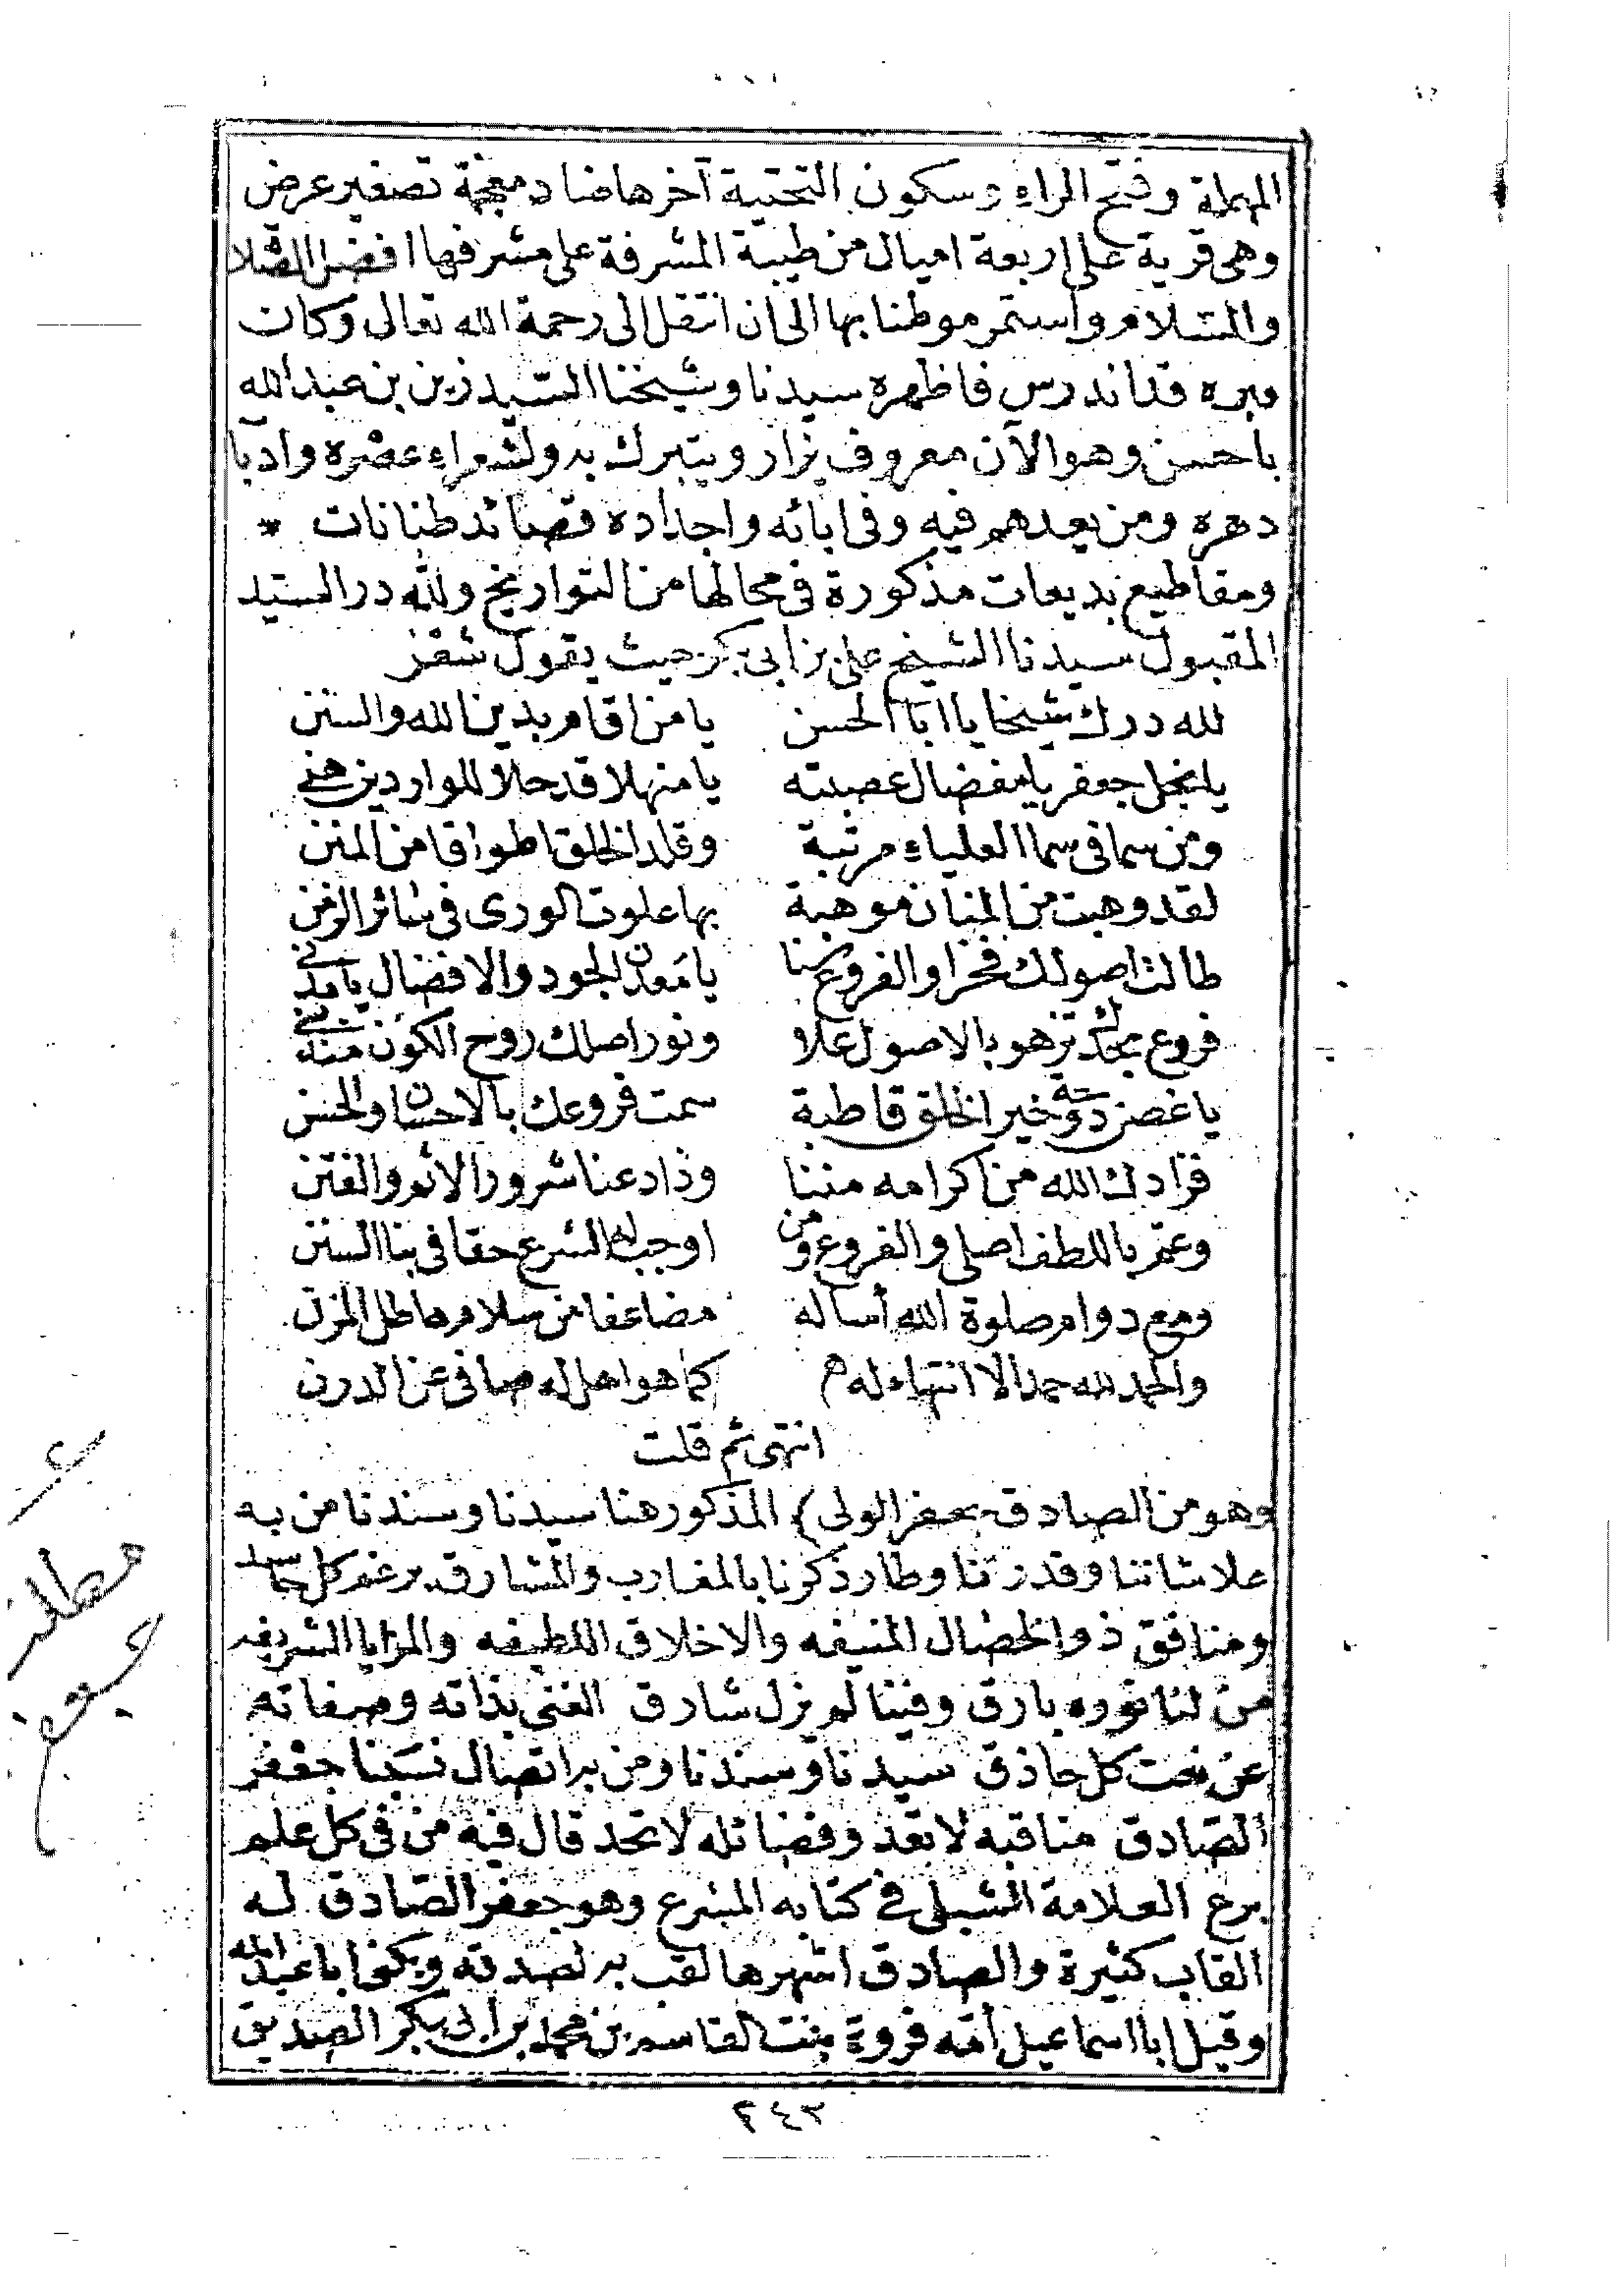 المهملة وفتح الراء وسكون التحتية آخرها ضاد معجمة تصغير عرض
وهى قرية على اربعة اميال من طيبة المشرفة على مشرفها افضل الصلا
والسلام واستمر موطنا بها الى ان انتقل الى رحمة الله تعالى وكان
قبره قد اندرس فاظهره سيدنا وشيخنا السيد زين بن عبدالله
باحسن وهو الآن معروف يزار ويتبرك به ولشعراء عصره وادبا
دهره ومن بعدهم فيه وفى ابائه واجداده قصائد طنانات *
ومقاطيع بديعات مذكورة فى محالها من التواريخ ولله در السيد
المقبول سيدنا الشيخ على بن ابى بكر حيث يقول شعر
لله درك شيخا يا ابا الحسن يا من اقام بدين الله والسنن
يا نجل جعفر يا مفضال عصبته يا منهلا قد حلا للواردين هني
ومن سما فى سما العلياء مرتبة وقلد الخلق اطواقا من المنن
لقد وهبت من المنان موهبة بها علوت الورى فى سائر الزمن
طالت اصولك فخرا والفروع سنا يا معدن الجود والافضال يا مدني
فروع مجدك تزهو بالاصول علا ونور اصلك روح الكون منه
يا غصن دوحة خير الخلق قاطبة سمت فروعك بالاحسان والحسن
فزادك الله من اكرامه مننا وذاد عنا شرور الاثم والفتن
وعم باللطف اصلى والفروع ومن اوجب له الشرع حقا فى بنا السنن
ومع دوام صلوة الله أساله مضاعفا من سلام هاطل المزن
والحمد لله حمدا لا انتهاء له كما هو اهل له صافى عن الدرن
انتهى ثم قلت
وهو من الصادق جعفر الولى) المذكور هنا سيدنا وسندنا من به
علا شاننا وقدرنا وطار ذكرنا بالمغارب والمشارق برغم كل حاسد
ومنافق ذو الخصال المنيفه والاخلاق اللطيفه والمزايا الشريفه
من لنا نوره بارق وفينا لم يزل شارق الغنى بذاته وصفاته
عن نعت كل حاذق سيدنا وسندنا ومن به اتصال نسبنا جعفر
الصادق مناقبه لا تعد وفضائله لا تحد قال فيه من فى كل علم
برع العلامة الشبلى في كتابه المشرع وهو جعفر الصادق له
القاب كثيرة والصادق اشهرها لقب به لصدقه ويكنى ابا عبد الله
وقيل ابا اسماعيل أمه فروة بنت القاسم بن محمد بن ابى بكر الصديق
٢٤٣